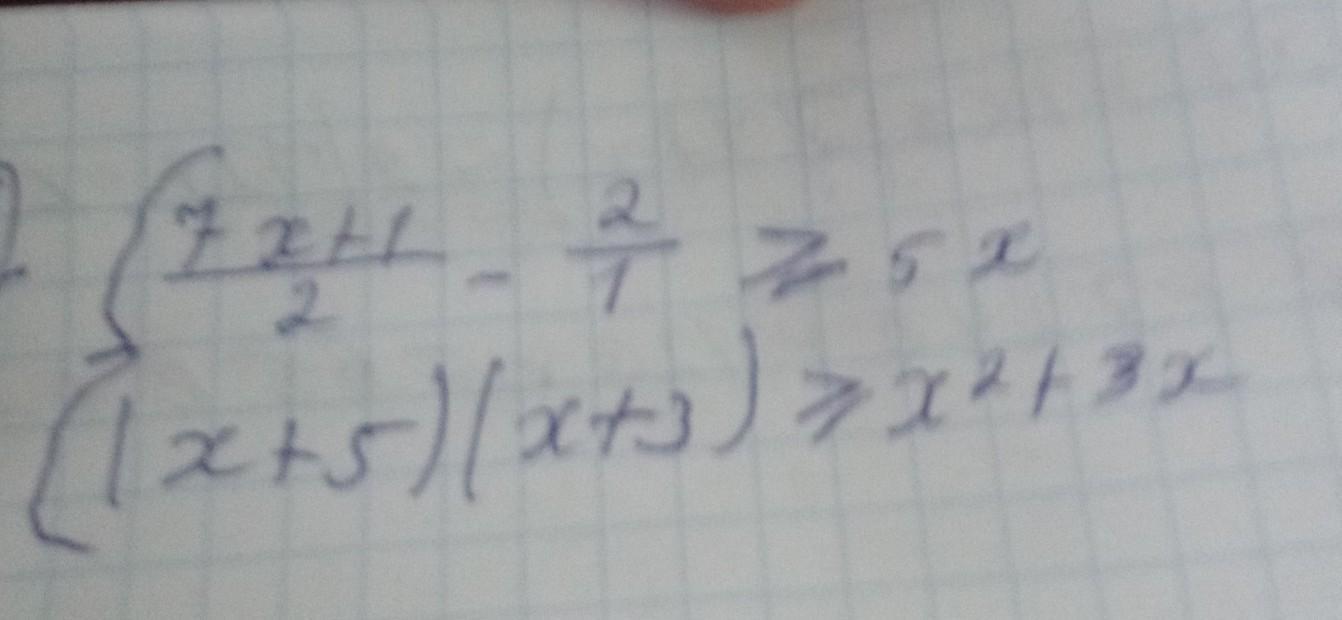 { (7x+1)/2 - 2/1 ≥ 5x
(x+5)(x+3) ≥ x²+3x